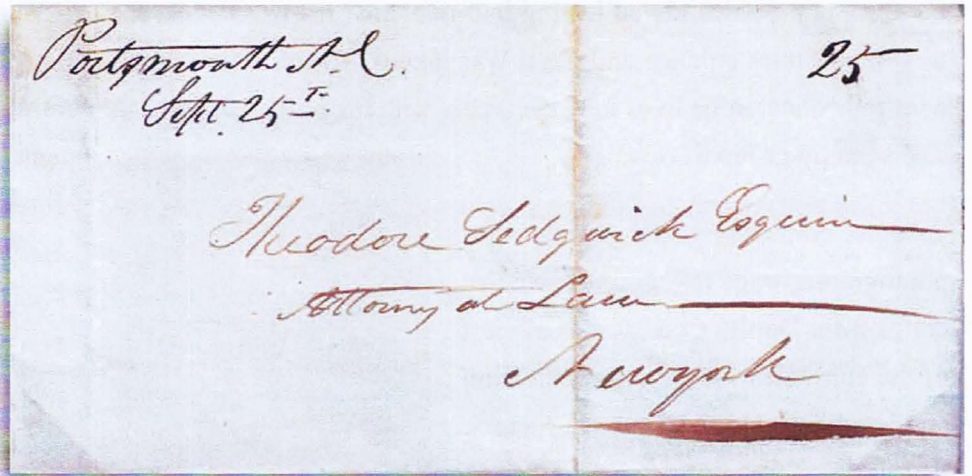 Portsmouth N.C.
Sept. 25th
25
Theodore Sedgwick Esquire
Attorny at Law
Newyork